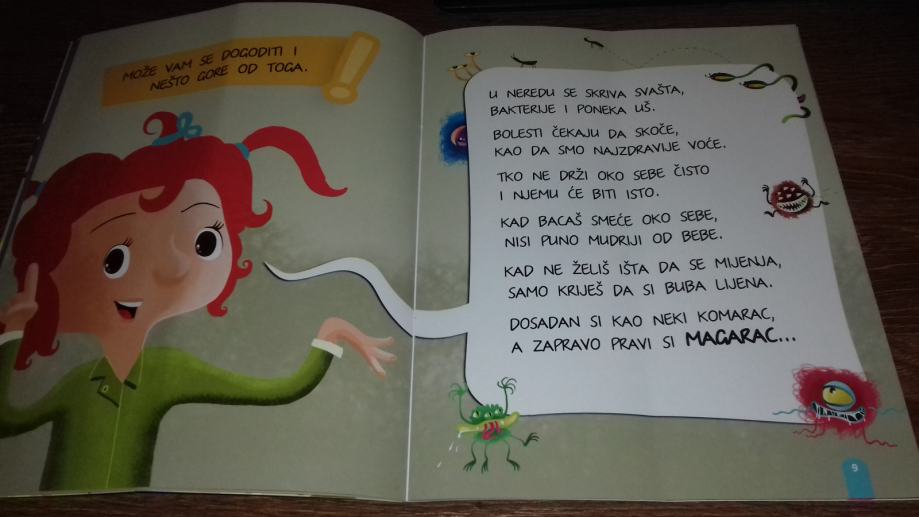 MOŽE VAM SE DOGODITI I
NEŠTO GORE OD TOGA.
U NEREDU SE SKRIVA SVAŠTA,
BAKTERIJE I PONEKA UŠ.
BOLESTI ČEKAJU DA SKOČE,
KAO DA SMO NAJZDRAVIJE VOĆE.
TKO NE DRŽI OKO SEBE ČISTO
I NJEMU ĆE BITI ISTO.
KAD BACAŠ SMEĆE OKO SEBE,
NISI PUNO MUDRIJI OD BEBE.
KAD NE ŽELIŠ IŠTA DA SE MIJENJA,
SAMO KRIJEŠ DA SI BUBA LIJENA.
DOSADAN SI KAO NEKI KOMARAC,
A ZAPRAVO PRAVI SI MAGARAC...
9